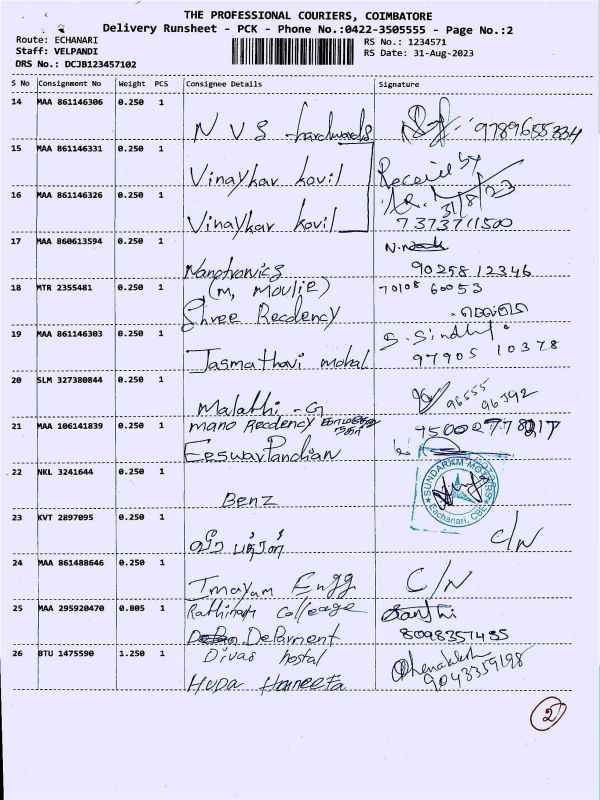 THE PROFESSIONAL COURIERS, COIMBATORE
Delivery Runsheet - PCK - Phone No.:0422-3505555 - Page No.:2
Route: ECHANARI
RS No.: 1234571
Staff: VELPANDI
RS Date: 31-Aug-2023
DRS No.: DCJB123457102
S No Consignment No Weight PCS Consignee Details Signature
14 MAA 861146306 0.250 1
NVS Hardwards 9789655334
15 MAA 861146331 0.250 1
Vinaykar kovil Received by
31/8/23
16 MAA 861146326 0.250 1
Vinaykar kovil 7373711500
17 MAA 860613594 0.250 1
Nanotronics 9025812346
18 MTR 2355481 0.250 1
(M, MOULIE) 70108 60053
Shree Recdency
19 MAA 861146303 0.250 1
S. Sindhu
Jasmathavi mohal 97905 10378
20 SLM 327380844 0.250 1
Malathi - G 96555 96392
21 MAA 106141839 0.250 1
Mano Recdency
Eeswar Pandian
22 NKL 3241644 0.250 1
SUNDARAM MOTORS
Eachanari, CBE
Benz
23 KVT 2897095 0.250 1
C/N
24 MAA 861488646 0.250 1
Imayam Engg C/N
25 MAA 295920470 0.805 1
Rathinam Colleage Santhi
Deparment 8098357435
26 BTU 1475590 1.250 1
Divas hostal
Huda Haneefa 9043359198
2